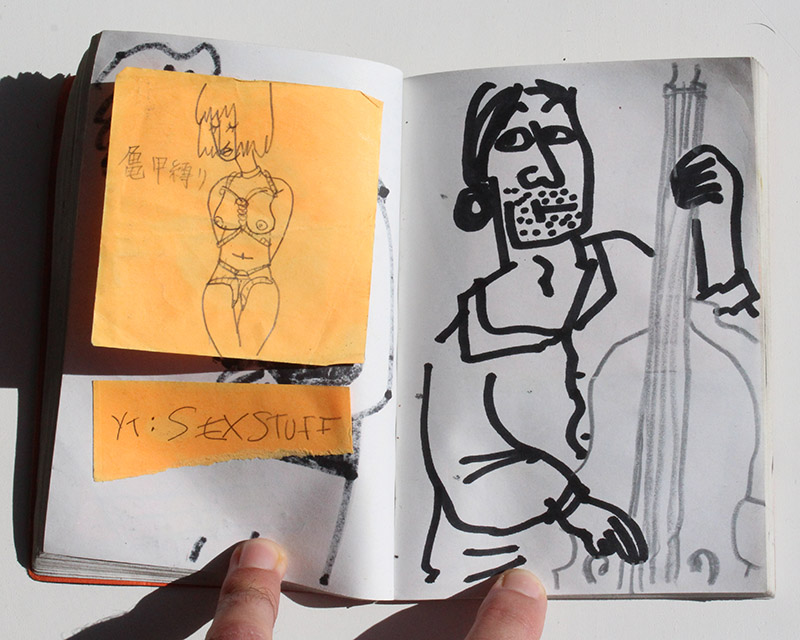 亀甲縛り
YT: SEX STUFF